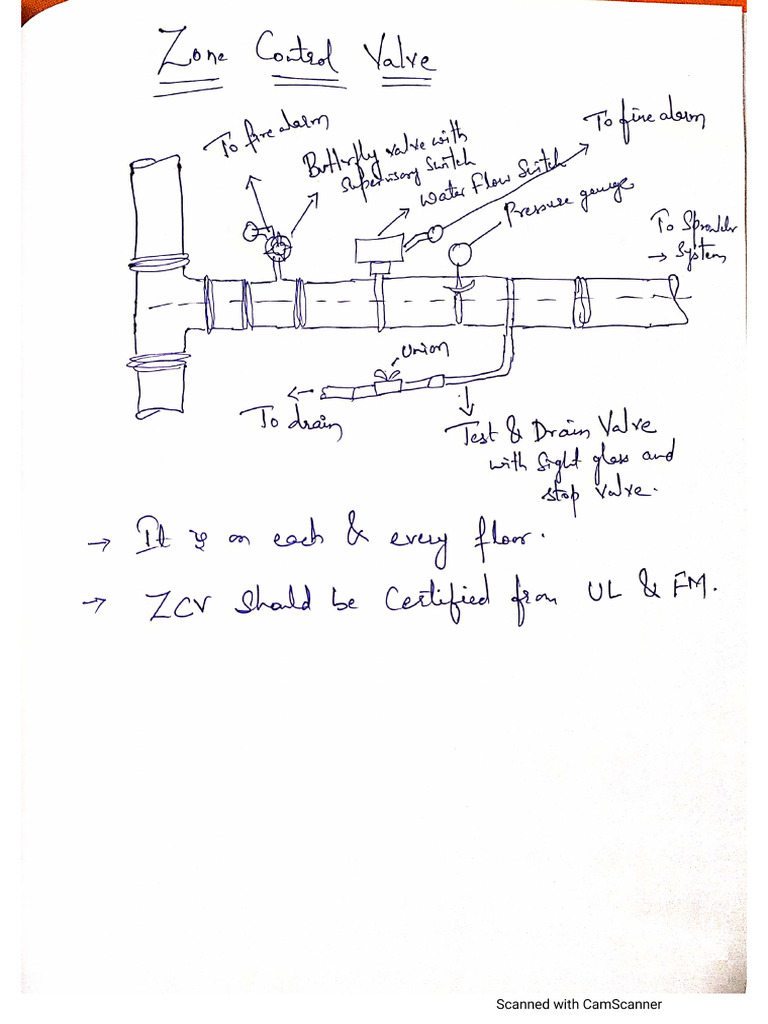 Zone Control Valve
To fire alarm
Butterfly valve with
Supervisory Switch
Water Flow Switch
To fire alarm
Pressure gauge
To Sprinkler
→ System
Union
To drain
Test & Drain Valve
with Sight glass and
stop valve.
→ It is on each & every floor.
→ ZCV should be Certified from UL & FM.
Scanned with CamScanner